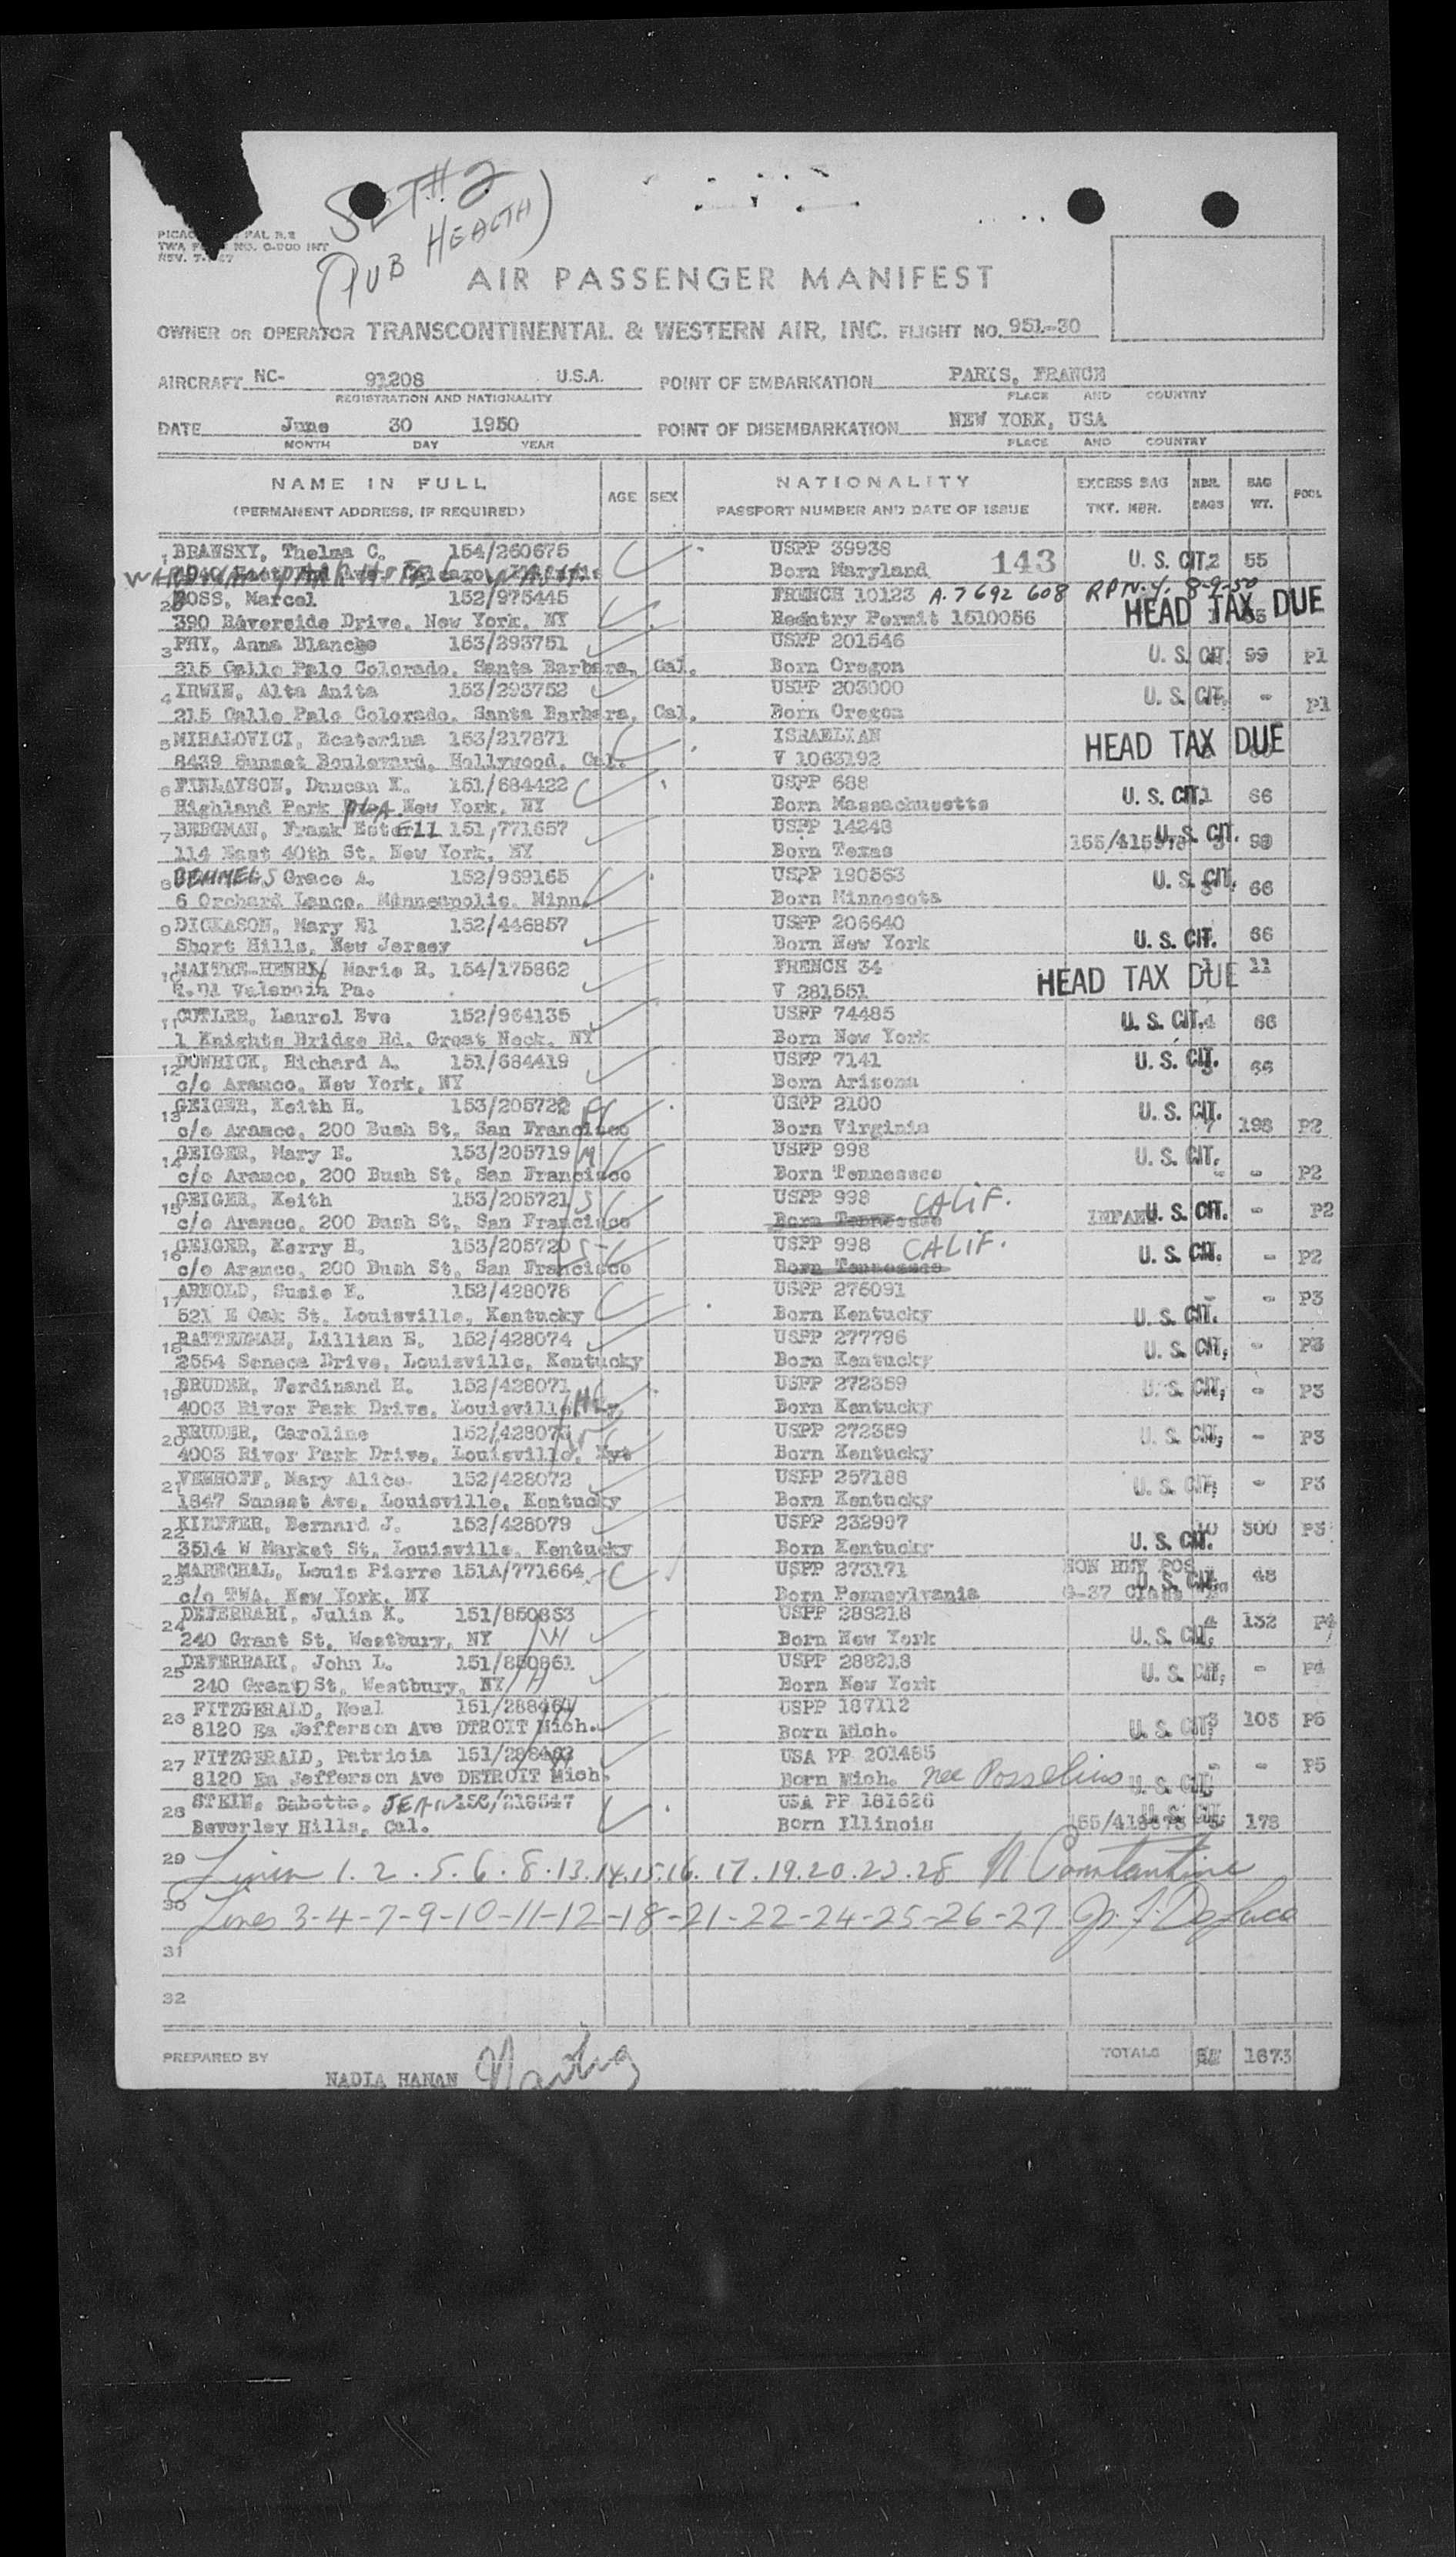 SET #2
(PUB HEALTH)
TWA NO. O-200 INT
REV.
AIR PASSENGER MANIFEST
OWNER OR OPERATOR TRANSCONTINENTAL & WESTERN AIR, INC. FLIGHT NO. 951-30
AIRCRAFT NC- 91208 U.S.A. POINT OF EMBARKATION PARIS, FRANCE
REGISTRATION AND NATIONALITY PLACE AND COUNTRY
DATE June 30 1950 POINT OF DISEMBARKATION NEW YORK, USA
MONTH DAY YEAR PLACE AND COUNTRY
NAME IN FULL AGE SEX NATIONALITY EXCESS BAG NBR. BAG POOL
(PERMANENT ADDRESS, IF REQUIRED) PASSPORT NUMBER AND DATE OF ISSUE TKT. NBR. BAGS WT.
1 BRAWSKY, Thelma C. 154/260675 USPP 39938 143 U. S. CIT. 2 55
Born Maryland
2 ROSS, Marcel 152/975445 FRENCH 10123 A.7 692 608 RPN.Y. 8-9-50
390 Riverside Drive, New York, NY Reentry Permit 1510056 HEAD TAX DUE
3 PHY, Anna Blanche 153/293751 USPP 201546
215 Calle Palo Colorado, Santa Barbara, Cal. Born Oregon U. S. CIT. 99 P1
4 IRWIN, Alta Anita 153/293752 USPP 203000 U. S. CIT. - P1
215 Calle Palo Colorado, Santa Barbara, Cal. Born Oregon
5 MIHALOVICI, Ecaterina 153/217871 ISRAELIAN HEAD TAX DUE
8439 Sunset Boulevard, Hollywood, Cal. V 1063192
6 FINLAYSON, Duncan K. 151/684422 USPP 688
Highland Park New York, NY Born Massachusetts U. S. CIT. 1 66
7 BERGMAN, Frank Estell 151/771657 USPP 14248 U. S. CIT.
114 East 40th St, New York, NY Born Texas 3 99
8 Grace A. 152/959165 USPP 190563 U. S. CIT. 66
6 Orchard Lance, Minneapolis, Minn. Born Minnesota
9 DICKASON, Mary El 152/446857 USPP 206640
Short Hills, New Jersey Born New York U. S. CIT. 66
10 MAITRE-HENRY, Marie R. 154/175862 FRENCH 34 HEAD TAX DUE 11
Valencia Pa. V 281551
11 CUTLER, Laurel Eve 152/964135 USPP 74485 U. S. CIT. 4 66
1 Knights Bridge Rd, Great Neck, NY Born New York
12 DOWRICK, Richard A. 151/684419 USPP 7141 U. S. CIT. 66
c/o Aramco, New York, NY Born Arizona
13 GEIGER, Keith H. 153/205722 USPP 2100 U. S. CIT.
c/o Aramco, 200 Bush St, San Francisco Born Virginia 198 P2
14 GEIGER, Mary E. 153/205719 USPP 998 U. S. CIT.
c/o Aramco, 200 Bush St, San Francisco Born Tennessee - - P2
15 GEIGER, Keith 153/205721 S USPP 998 CALIF.
c/o Aramco, 200 Bush St, San Francisco Born Tennessee INFANT U. S. CIT. - P2
16 GEIGER, Kerry H. 153/205720 S USPP 998 CALIF.
c/o Aramco, 200 Bush St, San Francisco Born Tennessee U. S. CIT. - P2
17 ARNOLD, Susie F. 152/428078 USPP 276091 - - P3
521 E Oak St, Louisville, Kentucky Born Kentucky U. S. CIT.
18 RATTERMAN, Lillian E. 152/428074 USPP 277796 U. S. CIT. - P3
2554 Seneca Drive, Louisville, Kentucky Born Kentucky
19 BRUDER, Ferdinand H. 152/428071 USPP 272359 U. S. CIT. - P3
4003 River Park Drive, Louisville, Born Kentucky
20 BRUDER, Caroline USPP 272359 U. S. CIT. - P3
4003 River Park Drive, Louisville, Kyt Born Kentucky
21 VEMHOFF, Mary Alice 152/428072 USPP 257188 U. S. CIT. - P3
1847 Sunset Ave, Louisville, Kentucky Born Kentucky
22 KIEFFER, Bernard J. 152/428079 USPP 232997 10 300 P3
3514 W Market St, Louisville, Kentucky Born Kentucky U. S. CIT.
23 MARECHAL, Louis Pierre 151A/771664 USPP 273171 NON REV POS 48
c/o TWA, New York, NY Born Pennsylvania U. S. CIT.
24 DEFERRARI, Julia K. 151/850853 USPP 288218 4 132 P4
240 Grant St, Westbury, NY W Born New York U. S. CIT.
25 DEFERRARI, John L. 151/850861 USPP 288218 U. S. CIT. - P4
240 Grant St, Westbury, NY H Born New York
26 FITZGERALD, Neal USPP 187112
8120 Ea Jefferson Ave DTROIT Mich. Born Mich. U. S. CIT. 3 105 P5
27 FITZGERALD, Patricia USA PP 201485 - - P5
8120 Ea Jefferson Ave DETROIT Mich. Born Mich. nee Posselius U. S. CIT.
28 STEIN, Babette, JEAN USA PP 181626 U. S. CIT.
Beverley Hills, Cal. Born Illinois 178
29 Lines 1. 2. 5. 6. 8. 13. 14. 15. 16. 17. 19. 20. 23. 28 N Constantine
30 Lines 3-4-7-9-10-11-12-18-21-22-24-25-26-27
31
32
PREPARED BY NADIA HANAN TOTALS 1673